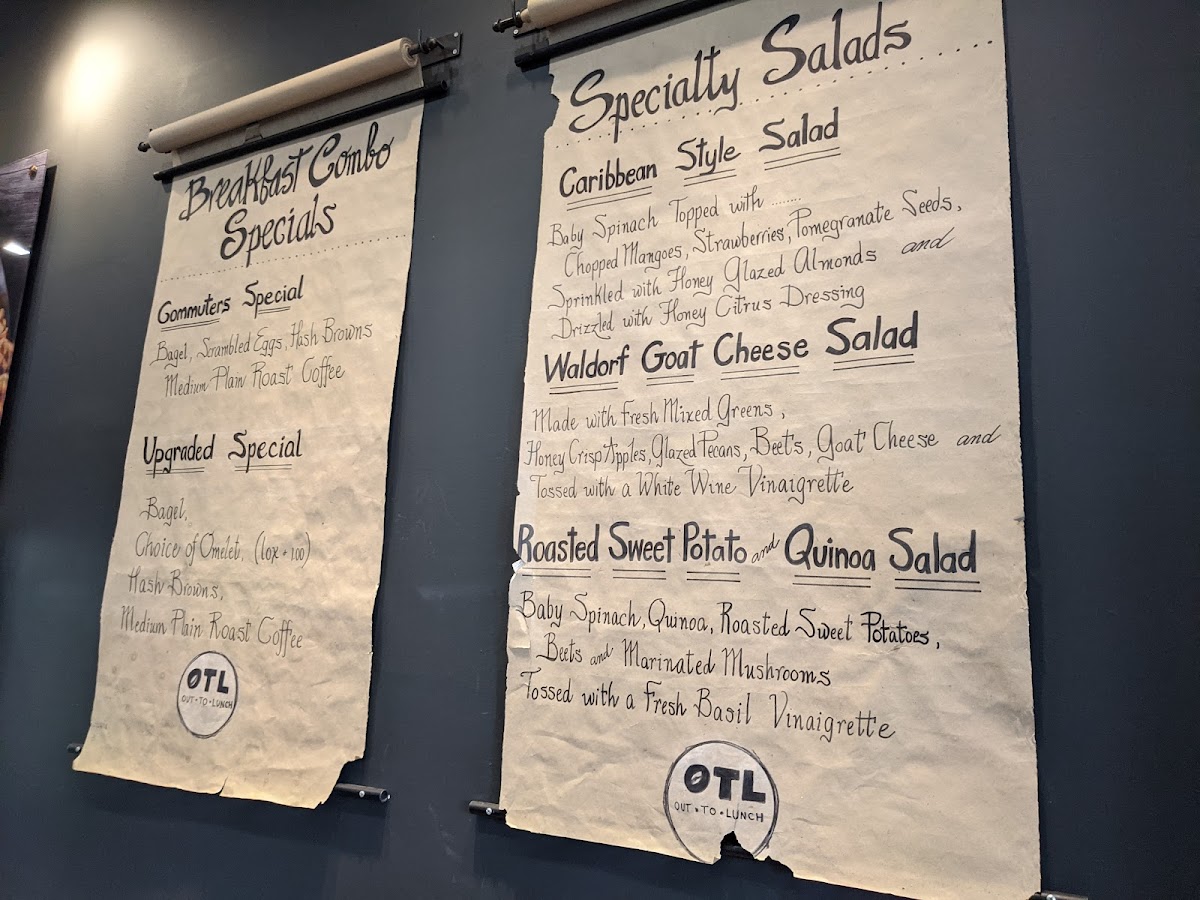 Breakfast Combo
Specials
Commuters Special
Bagel, Scrambled Eggs, Hash Browns
Medium Plain Roast Coffee
Upgraded Special
Bagel,
Choice of Omelet, (lox + 1.00)
Hash Browns,
Medium Plain Roast Coffee
OTL
OUT•TO•LUNCH
Specialty Salads
Caribbean Style Salad
Baby Spinach Topped with ........
Chopped Mangoes, Strawberries, Pomegranate Seeds,
Sprinkled with Honey Glazed Almonds and
Drizzled with Honey Citrus Dressing
Waldorf Goat Cheese Salad
Made with Fresh Mixed Greens,
Honey Crisp Apples, Glazed Pecans, Beets, Goat Cheese and
Tossed with a White Wine Vinaigrette
Roasted Sweet Potato and Quinoa Salad
Baby Spinach, Quinoa, Roasted Sweet Potatoes,
Beets and Marinated Mushrooms
Tossed with a Fresh Basil Vinaigrette
OTL
OUT•TO•LUNCH